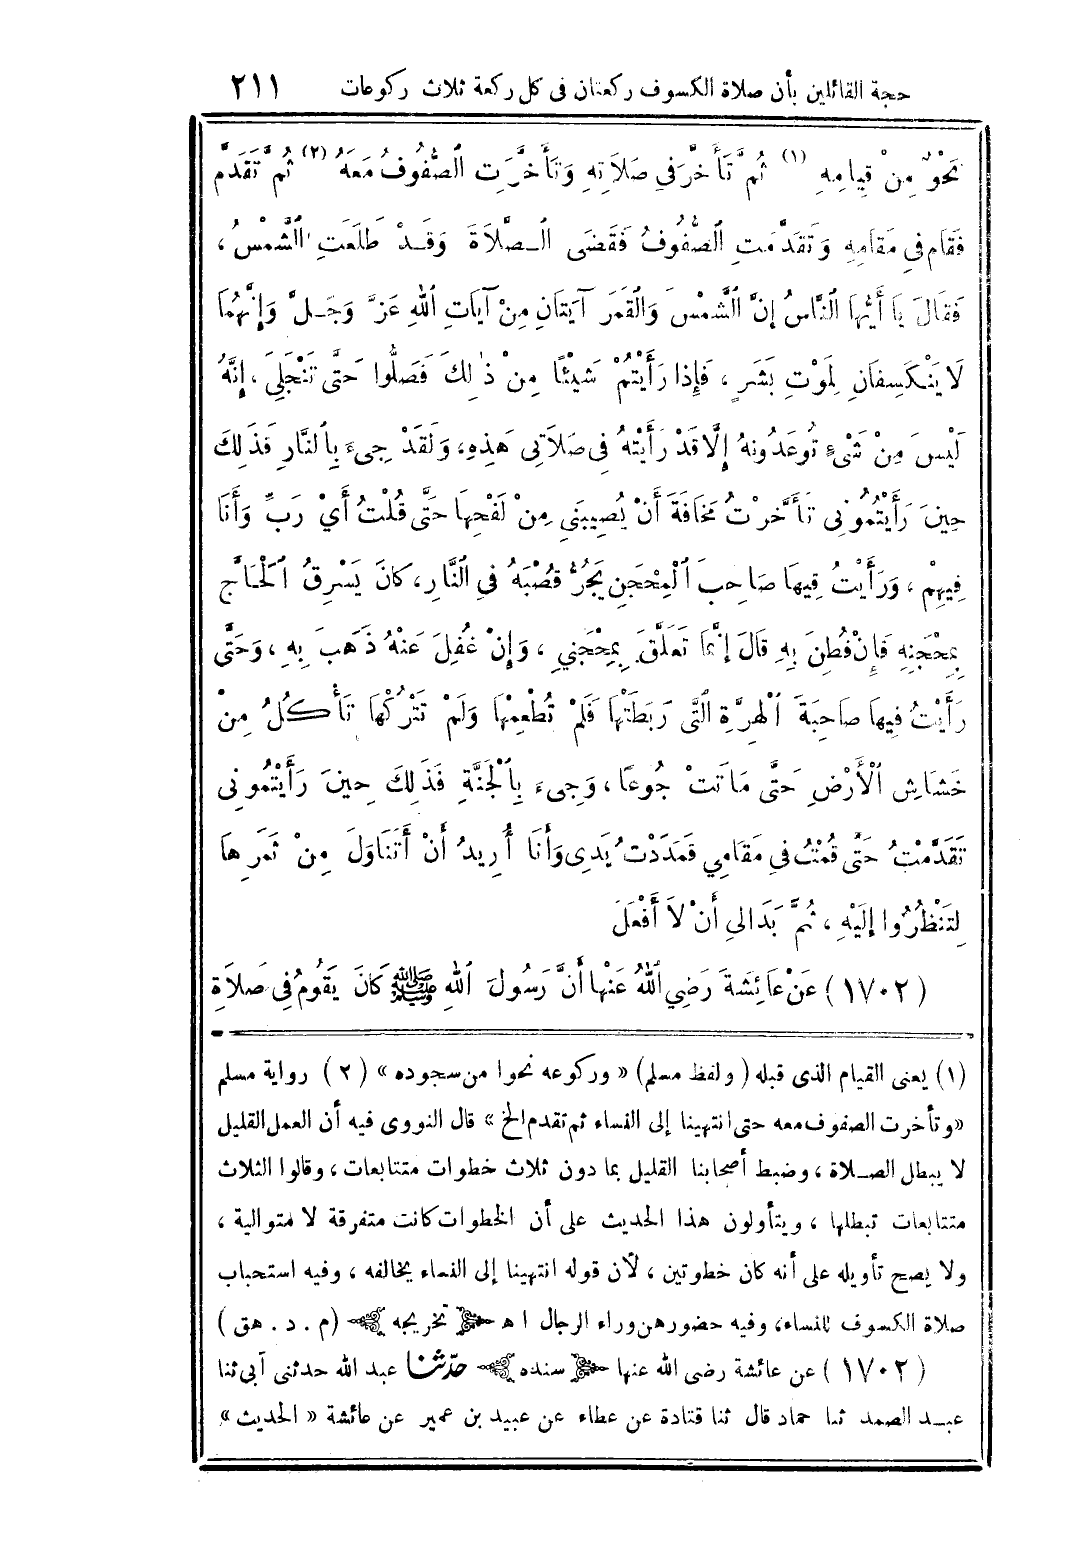 حجة القائلين بأن صلاة الكسوف ركعتان فى كل ركعة ثلاث ركوعات ٢١١
نَحْوٌ مِنْ قِيامِهِ (١) ثُمَّ تَأَخَّرَ فِي صَلَاتِهِ وَتَأَخَّرَتِ الصُّفُوفُ مَعَهُ (٢) ثُمَّ تَقَدَّمَ
فَقَامَ فِي مَقَامِهِ وَتَقَدَّمَتِ الصُّفُوفُ فَقَضَى الصَّلَاةَ وَقَدْ طَلَعَتِ الشَّمْسُ،
فَقَالَ يَا أَيُّهَا النَّاسُ إِنَّ الشَّمْسَ وَالْقَمَرَ آيَتَانِ مِنْ آيَاتِ اللهِ عَزَّ وَجَلَّ وَإِنَّهُمَا
لَا يَنْكَسِفَانِ لِمَوْتِ بَشَرٍ، فَإِذَا رَأَيْتُمْ شَيْئًا مِنْ ذٰلِكَ فَصَلُّوا حَتَّى تَنْجَلِيَ، إِنَّهُ
لَيْسَ مِنْ شَىْءٍ تُوعَدُونَهُ إِلَّا قَدْ رَأَيْتُهُ فِى صَلَاتِى هَذِهِ، وَلَقَدْ جِىءَ بِالنَّارِ فَذَلِكَ
حِينَ رَأَيْتُمُونِى تَأَخَّرْتُ مَخَافَةَ أَنْ يُصِيبَنِى مِنْ لَفْحِهَا حَتَّى قُلْتُ أَيْ رَبِّ وَأَنَا
فِيهِمْ، وَرَأَيْتُ فِيهَا صَاحِبَ الْمِحْجَنِ يَجُرُّ قُصْبَهُ فِي النَّارِ، كَانَ يَسْرِقُ الْحَاجَّ
بِمِحْجَنِهِ فَإِنْ فُطِنَ بِهِ قَالَ إِنَّمَا تَعَلَّقَ بِمِحْجَنِي، وَإِنْ غُفِلَ عَنْهُ ذَهَبَ بِهِ، وَحَتَّى
رَأَيْتُ فِيهَا صَاحِبَةَ الْهِرَّةِ الَّتِى رَبَطَتْهَا فَلَمْ تُطْعِمْهَا وَلَمْ تَتْرُكْهَا تَأْكُلُ مِنْ
خَشَاشِ الْأَرْضِ حَتَّى مَاتَتْ جُوعًا، وَجِىءَ بِالْجَنَّةِ فَذَلِكَ حِينَ رَأَيْتُمُونِى
تَقَدَّمْتُ حَتَّى قُمْتُ فِي مَقَامِي فَمَدَدْتُ يَدِى وَأَنَا أُرِيدُ أَنْ أَتَنَاوَلَ مِنْ ثَمَرِهَا
لِتَنْظُرُوا إِلَيْهِ، ثُمَّ بَدَالِى أَنْ لَا أَفْعَلَ
(١٧٠٢) عَنْ عَائِشَةَ رَضِيَ اللهُ عَنْهَا أَنَّ رَسُولَ اللهِ ﷺ كَانَ يَقُومُ فِى صَلَاةِ
(١) يعنى القيام الذى قبله (ولفظ مسلم) «وركوعه نحوا من سجوده» (٢) رواية مسلم
«وتأخرت الصفوف معه حتى انتهينا إلى النساء ثم تقدم الخ» قال النووى فيه أن العمل القليل
لا يبطل الصلاة، وضبط أصحابنا القليل بما دون ثلاث خطوات متتابعات، وقالوا الثلاث
متتابعات تبطلها، ويتأولون هذا الحديث على أن الخطوات كانت متفرقة لا متوالية،
ولا يصح تأويله على أنه كان خطوتين، لأن قوله انتهينا إلى النساء يخالفه، وفيه استحباب
صلاة الكسوف للنساء، وفيه حضورهن وراء الرجال اه ﴿تخريجه﴾ (م . د . هق)
(١٧٠٢) عن عائشة رضى الله عنها ﴿سنده﴾ حدّثنا عبد الله حدثنى أبى ثنا
عبد الصمد ثنا حماد قال ثنا قتادة عن عطاء عن عبيد بن عمير عن عائشة «الحديث»